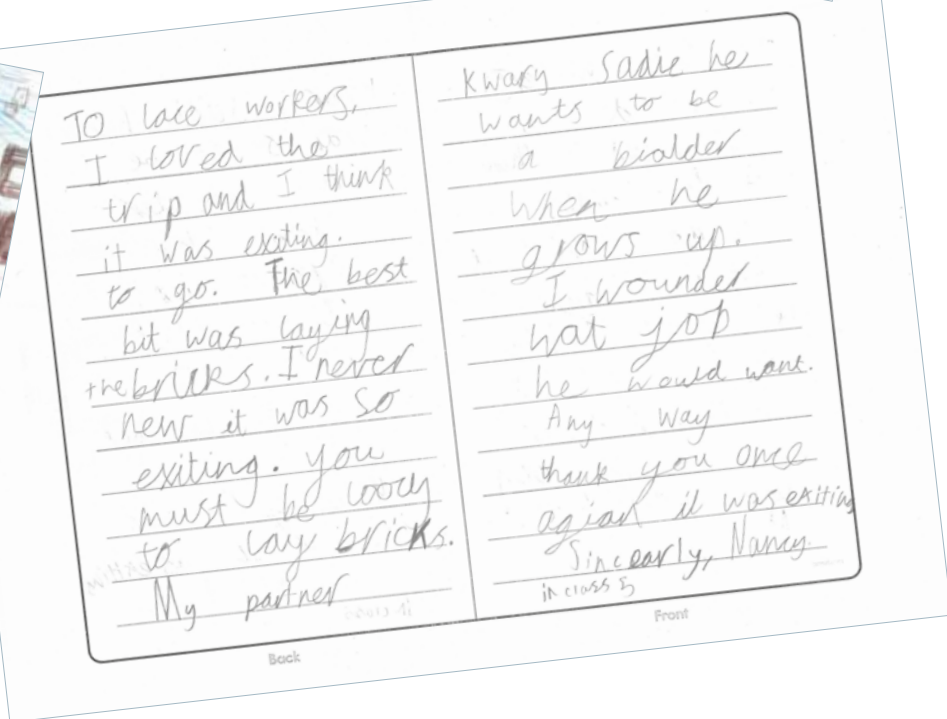 TO lace workers,
I loved the
trip and I think
it was exating.
to go. The best
bit was laying
the bricks. I never
new it was so
exiting. you
must be
to lay bricks.
My partner
Back
Kwary Sadie he
wants to be
a bialder
When he
grows up.
I wounder
wat job
he would want.
Any way
thank you once
agian it was exiting
Sincearly, Nancy.
in class 5
Front